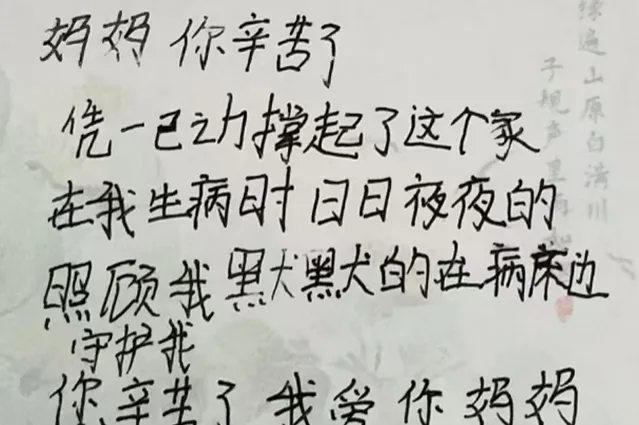 妈妈你辛苦了
凭一己之力撑起了这个家
在我生病时日日夜夜的
照顾我默默的在病床边
守护我
你辛苦了我爱你妈妈
绿遍山原白满川
子规声里雨如